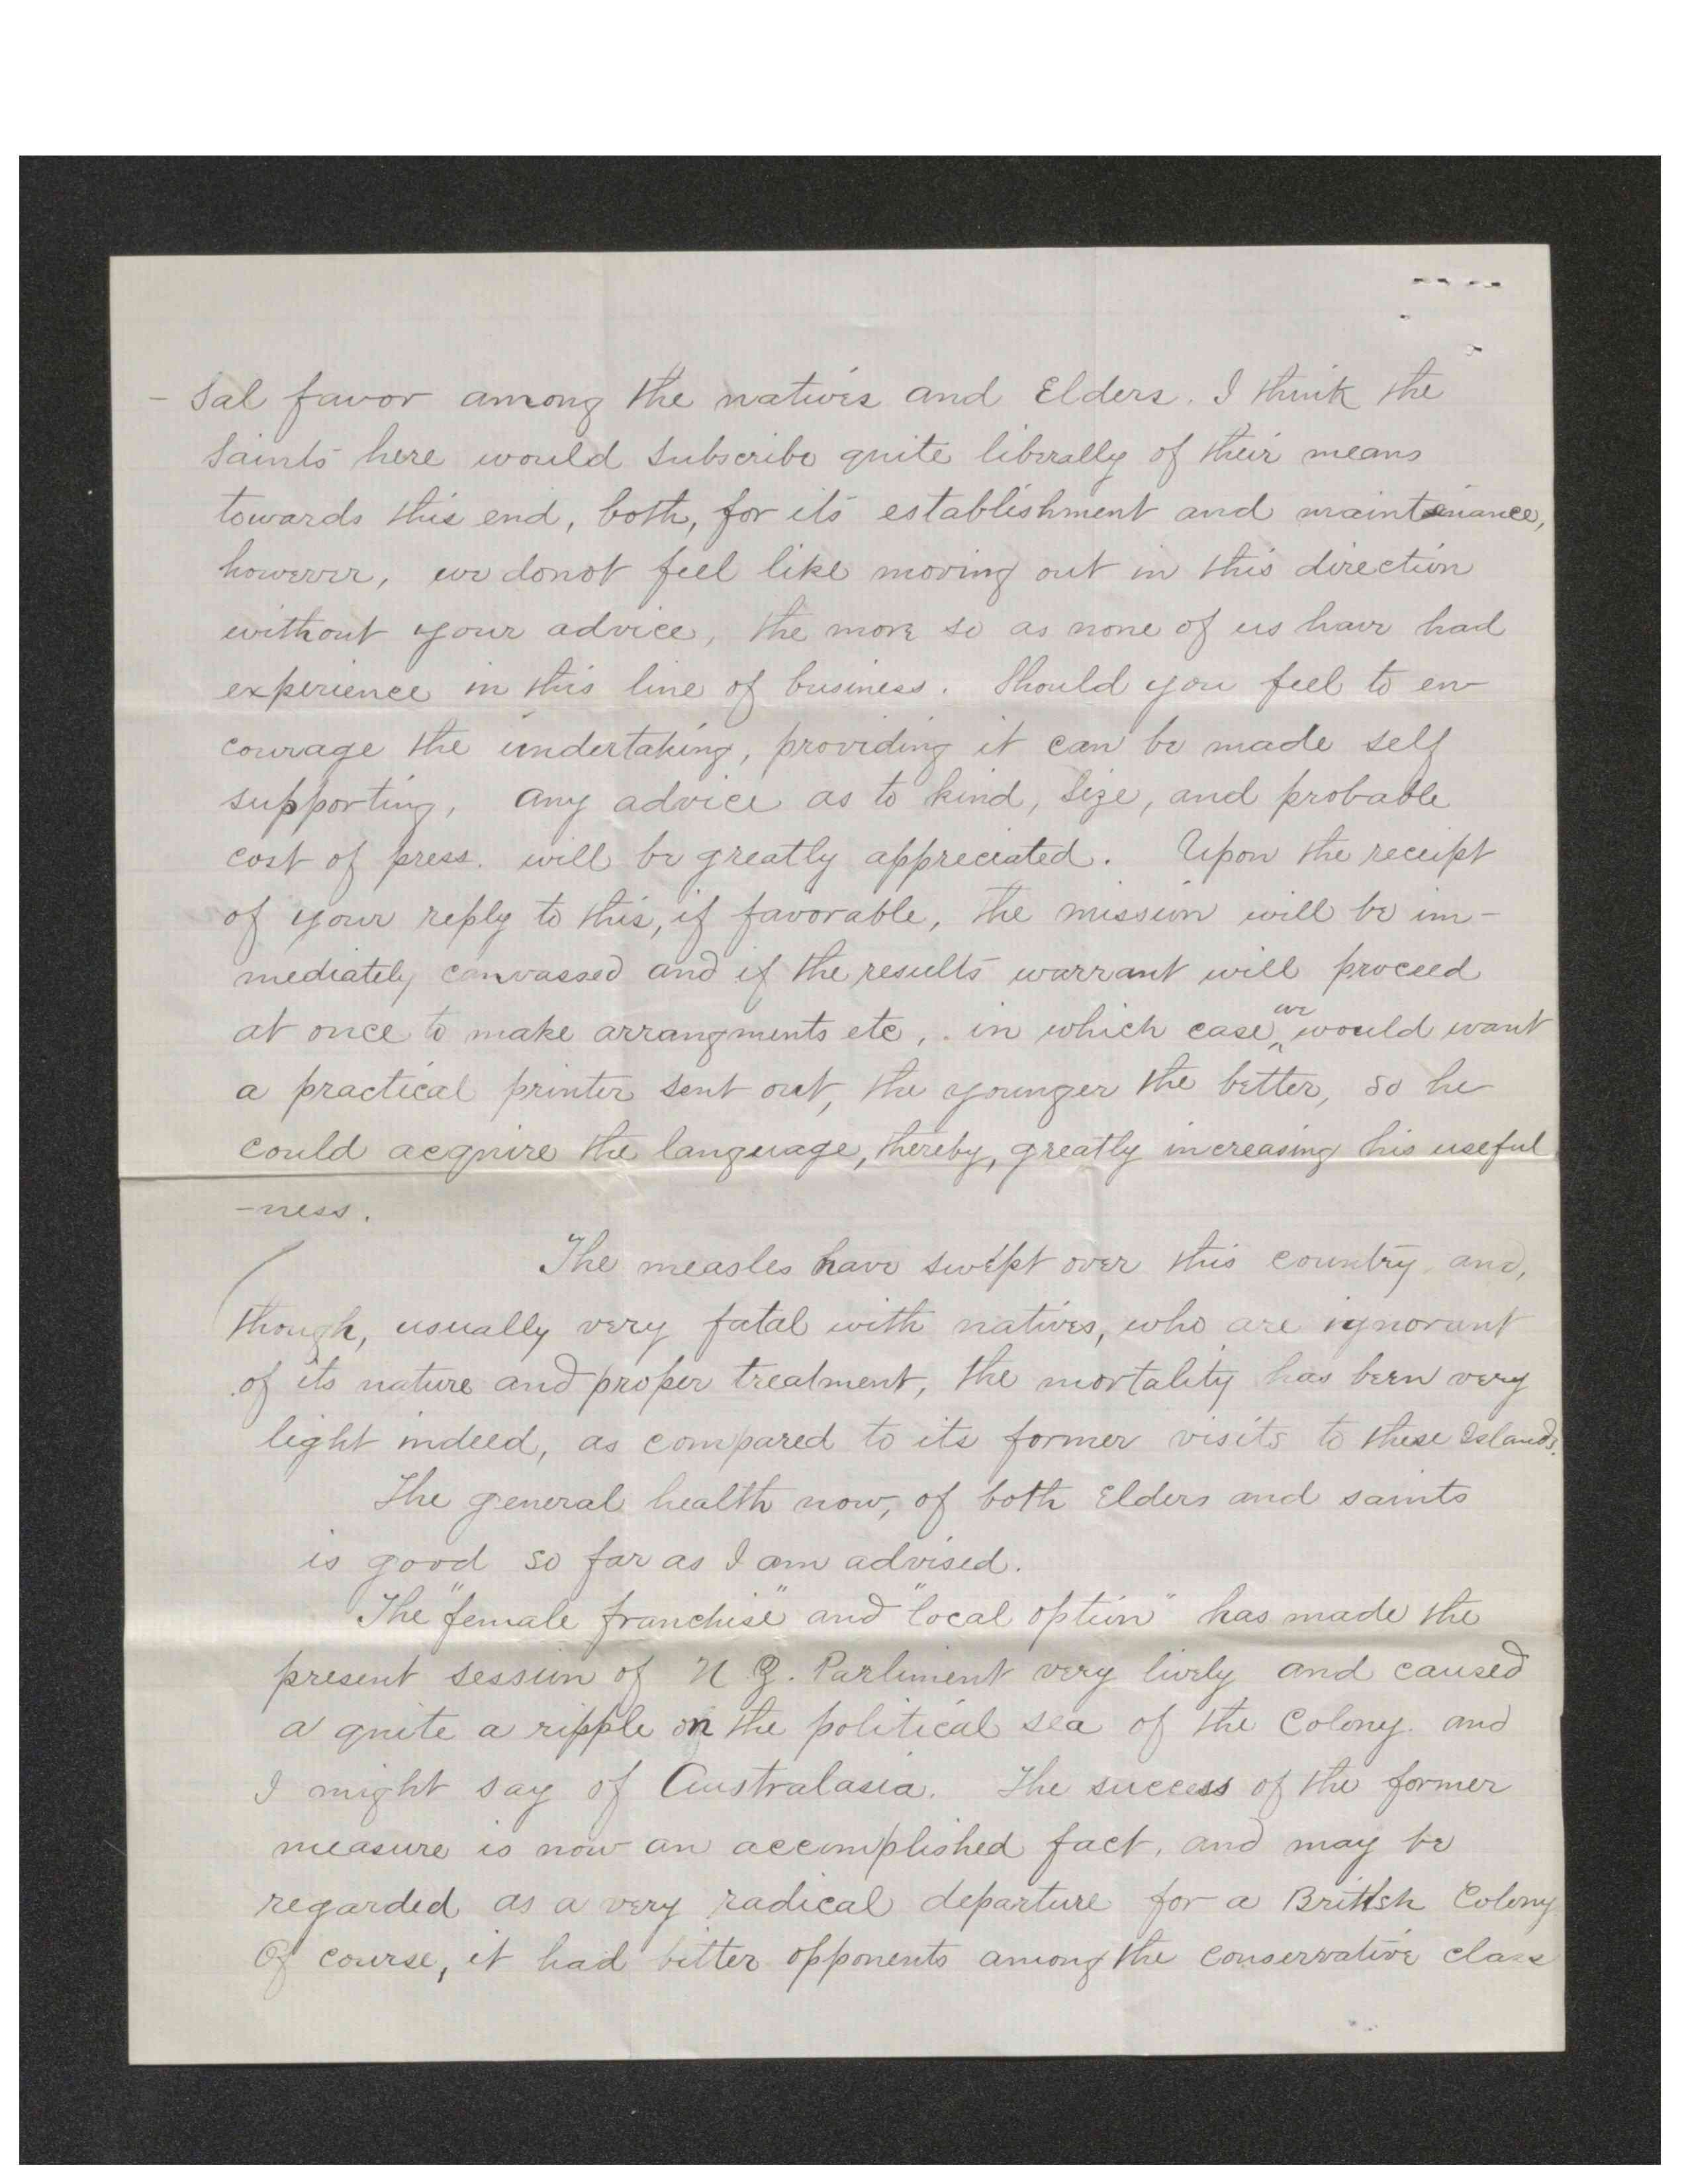 - sal favor among the natives and Elders. I think the
saints here would subscribe quite liberally of their means
towards this end, both, for its establishment and maintenance,
however, we donot feel like moving out in this direction
without your advice, the more so as none of us have had
experience in this line of business. Should you feel to en-
courage the undertaking, providing it can be made self
supporting, any advice as to kind, size, and probable
cost of press. will be greatly appreciated. Upon the receipt
of your reply to this, if favorable, the mission will be im-
mediately canvassed and if the results warrant will proceed
at once to make arrangments etc,. in which case we would want
a practical printer sent out, the younger the better, so he
could acquire the language, thereby, greatly increasing his useful
-ness.
The measles have swept over this country and,
though, usually very fatal with natives, who are ignorant
of its nature and proper treatment, the mortality has been very
light indeed, as compared to its former visits to these Islands.
The general health now, of both Elders and saints
is good so far as I am advised.
The "female franchise" and "local option" has made the
present session of N Z. Parliment very lively and caused
a quite a ripple on the political sea of the Colony. and
I might say of Australasia. The success of the former
measure is now an accomplished fact, and may be
regarded as a very radical departure for a British Colony
Of course, it had bitter opponents among the conservative class